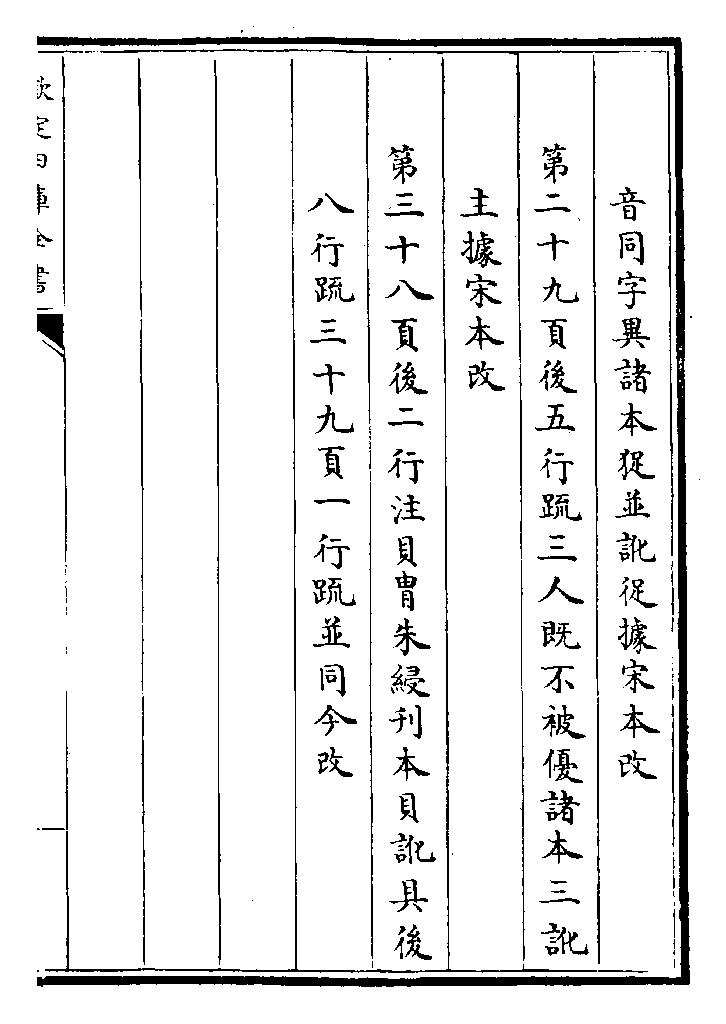 音同字異諸本㹴並訛従據宋本改
第二十九頁後五行䟽三人既不被優諸本三訛
主據宋本改
第三十八頁後二行注貝胄朱綅刋本貝訛具後
八行䟽三十九頁一行䟽並同今改
欽定四庫全書